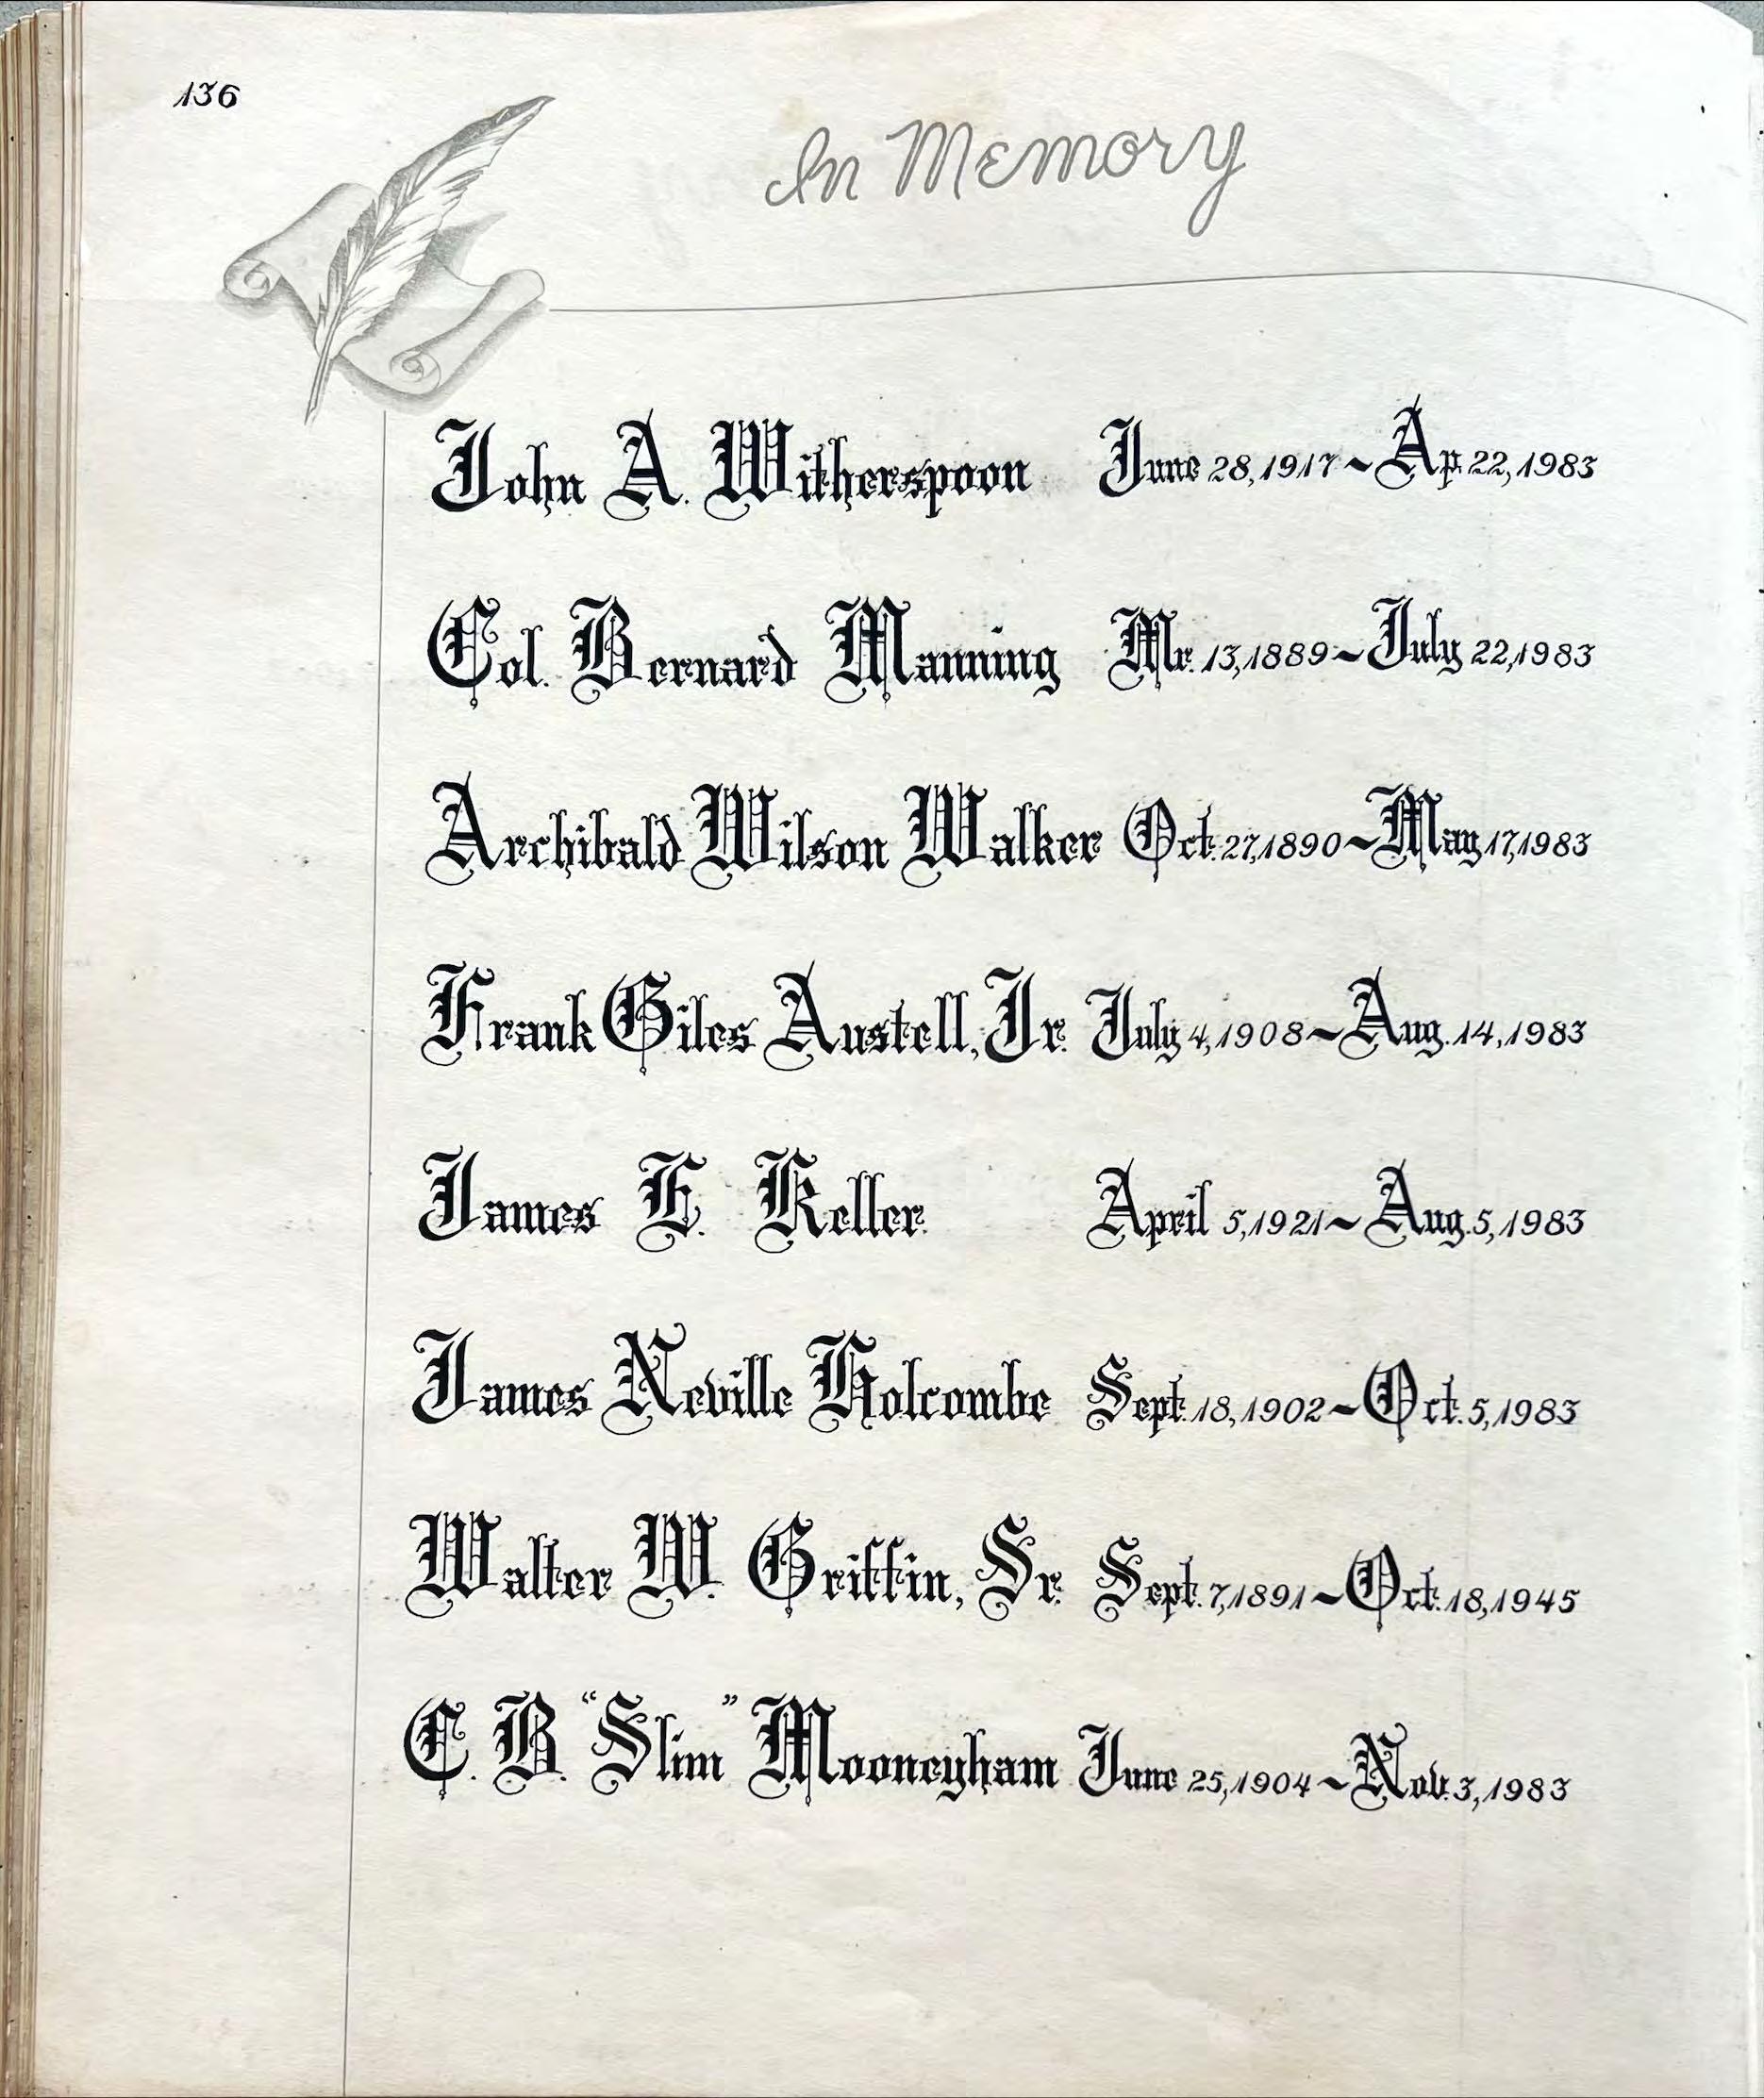 136
In Memory
John A. Witherspoon June 28, 1917 ~ Ap. 22, 1983
Col. Bernard Manning Mr. 13, 1889 ~ July 22, 1983
Archibald Wilson Walker Oct. 27, 1890 ~ May 17, 1983
Frank Giles Austell, Jr. July 4, 1908 ~ Aug. 14, 1983
James E. Keller April 5, 1921 ~ Aug. 5, 1983
James Neville Holcombe Sept. 18, 1902 ~ Oct. 5, 1983
Walter W. Griffin, Sr. Sept. 7, 1891 ~ Oct. 18, 1945
C. B. “Slim” Mooneyham June 25, 1904 ~ Nov. 3, 1983